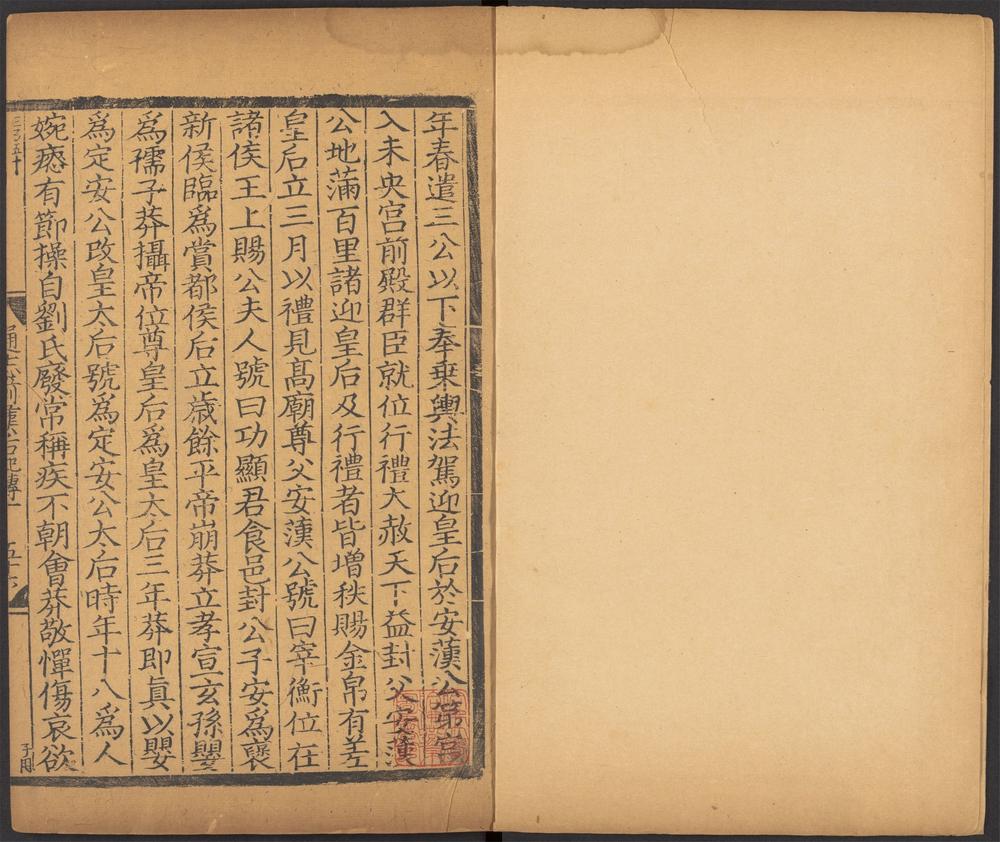 年春遣三公以下奉乗輿法駕迎皇后於安漢公第宫
入未央宫前殿群臣就位行禮大赦天下益封父安漢
公地滿百里諸迎皇后及行禮者皆增秩賜金帛有差
皇后立三月以禮見髙廟尊父安漢公號曰宰衡位在
諸侯王上賜公夫人號曰功顯君食邑封公子安爲襃
新侯臨爲賞都侯后立歳餘平帝崩莽立孝宣玄孫嬰
爲孺子莽攝帝位尊皇后爲皇太后三年莽即眞以嬰
爲定安公改皇太后號爲定安公太后時年十八爲人
婉瘱有節操自劉氏廢常稱疾不朝會莽敬憚傷哀欲